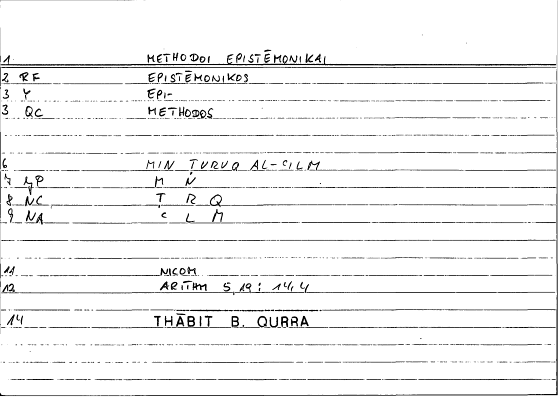 1 METHODOI EPISTĒMONIKAI
2 RF EPISTĒMONIKOS
3 Y EPI-
3 QC METHODOS
6 MIN ṬURUQ AL-CILM
7 LP M N
8 NC Ṭ R Q
9 NA C L M
11 NICOM
12 ARITHM 5,19 : 14,4
14 THĀBIT B. QURRA